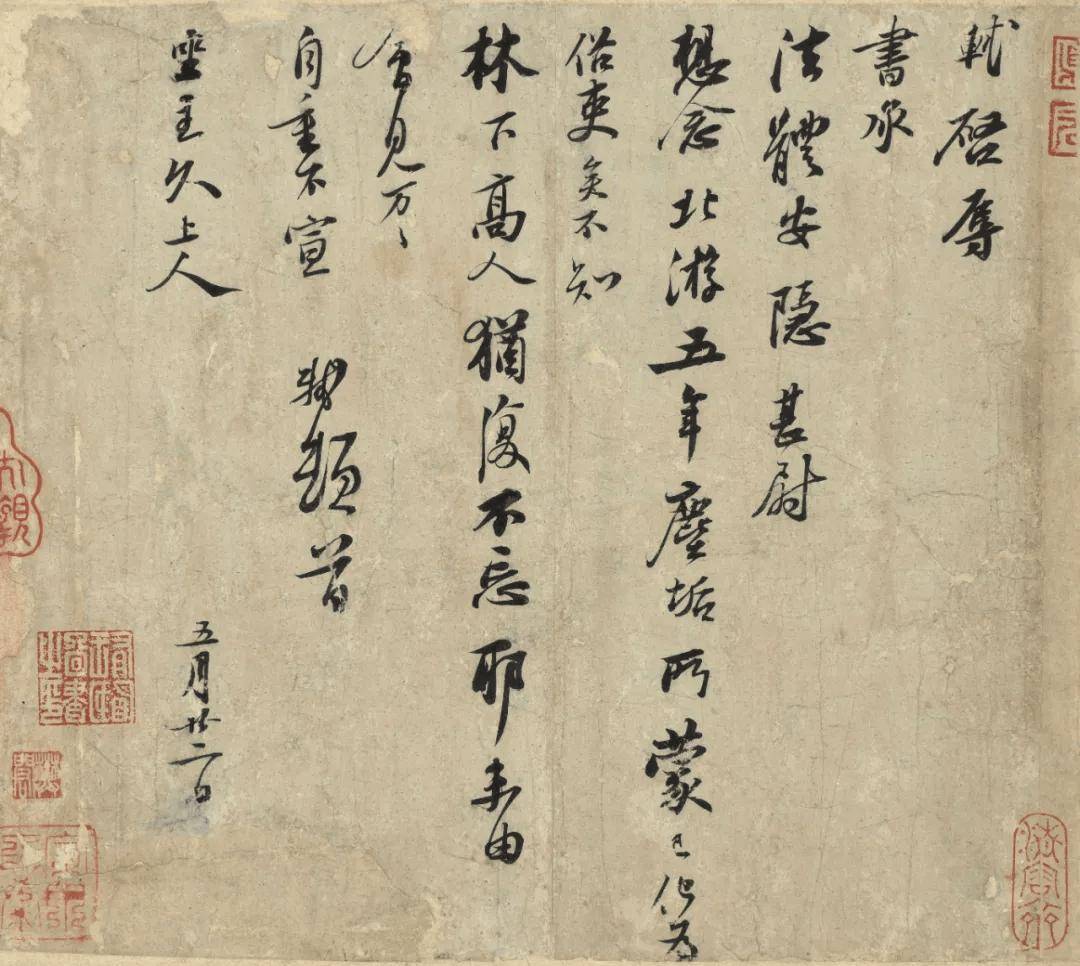 軾啓辱
書承
法體安隱甚尉
想念北游五年塵垢所蒙已化為
俗吏矣不知
林下高人猶復不忘耶未由
會見万万
自重不宣 軾頓首
坐主久上人
五月廿二日